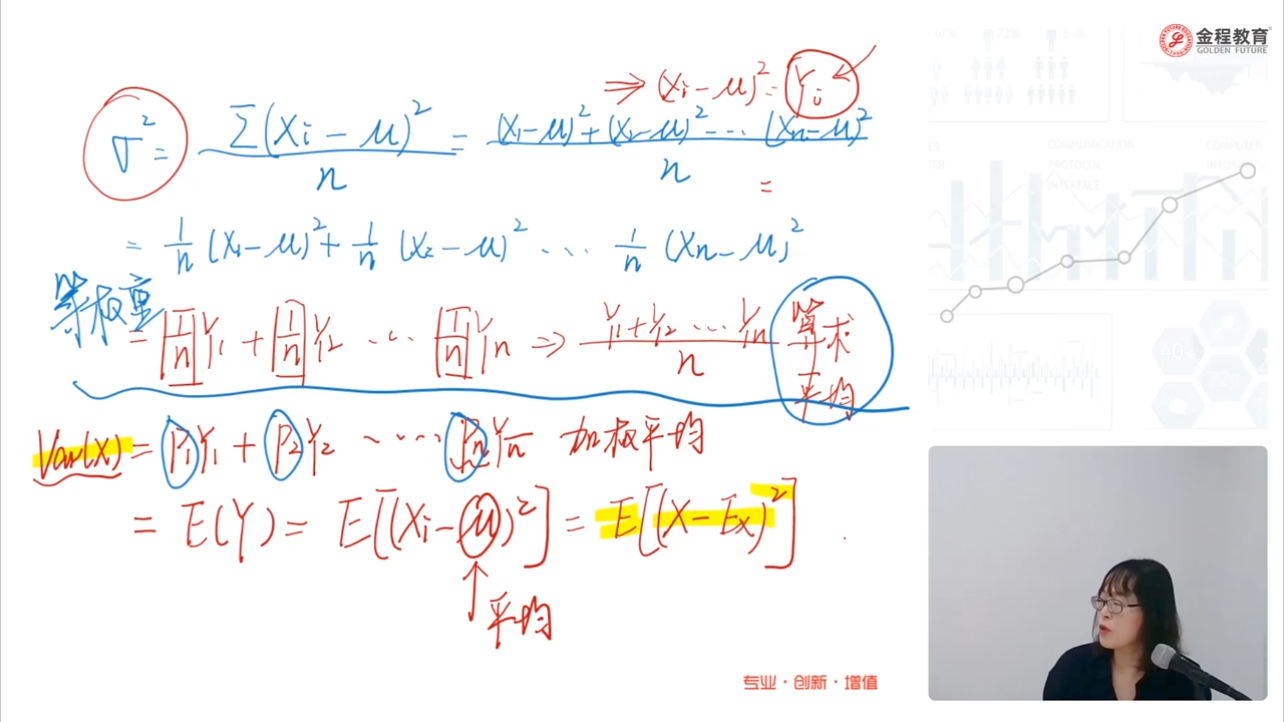 金程教育
GOLDEN FUTURE
⇒ (Xi − μ)² = Yi
σ² = Σ(Xi − μ)² / n = (X1 − μ)² + (X2 − μ)² ⋯ (Xn − μ)² / n
=
= 1/n (X1 − μ)² + 1/n (X2 − μ)² ⋯ 1/n (Xn − μ)²
等权重
= 1/n Y1 + 1/n Y2 ⋯ 1/n Yn ⇒ Y1 + Y2 ⋯ Yn / n 算术
平均
Var(X) = P1Y1 + P2Y2 ⋯ PnYn 加权平均
= E(Y) = E[(Xi − μ)²] = E[(X − Ex)²]
平均
专业・创新・增值